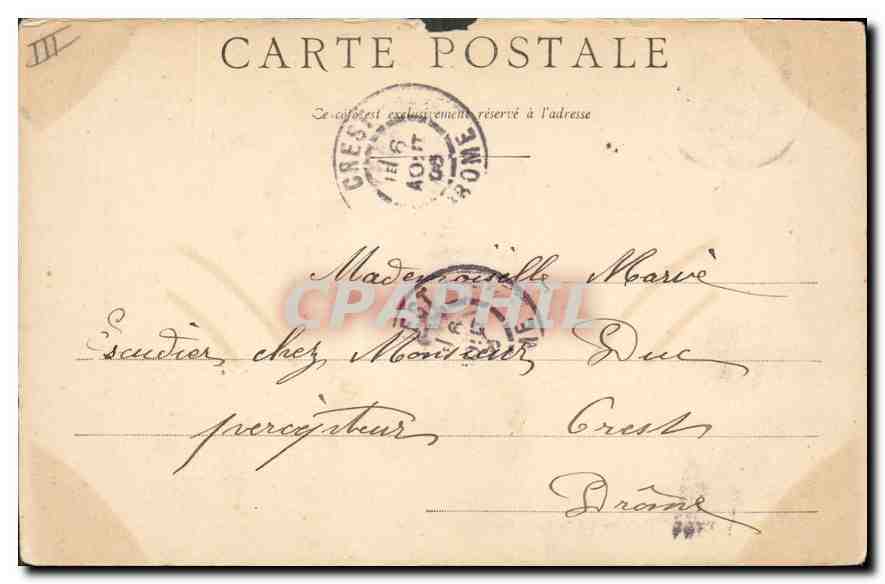 III
CARTE POSTALE
Ce côté est exclusivement réservé à l'adresse
CREST
6
AOUT
DROME
Mademoiselle Marie
CPAPHIL
Escudier chez Monsieur Duc
percepteur Crest
Drôme